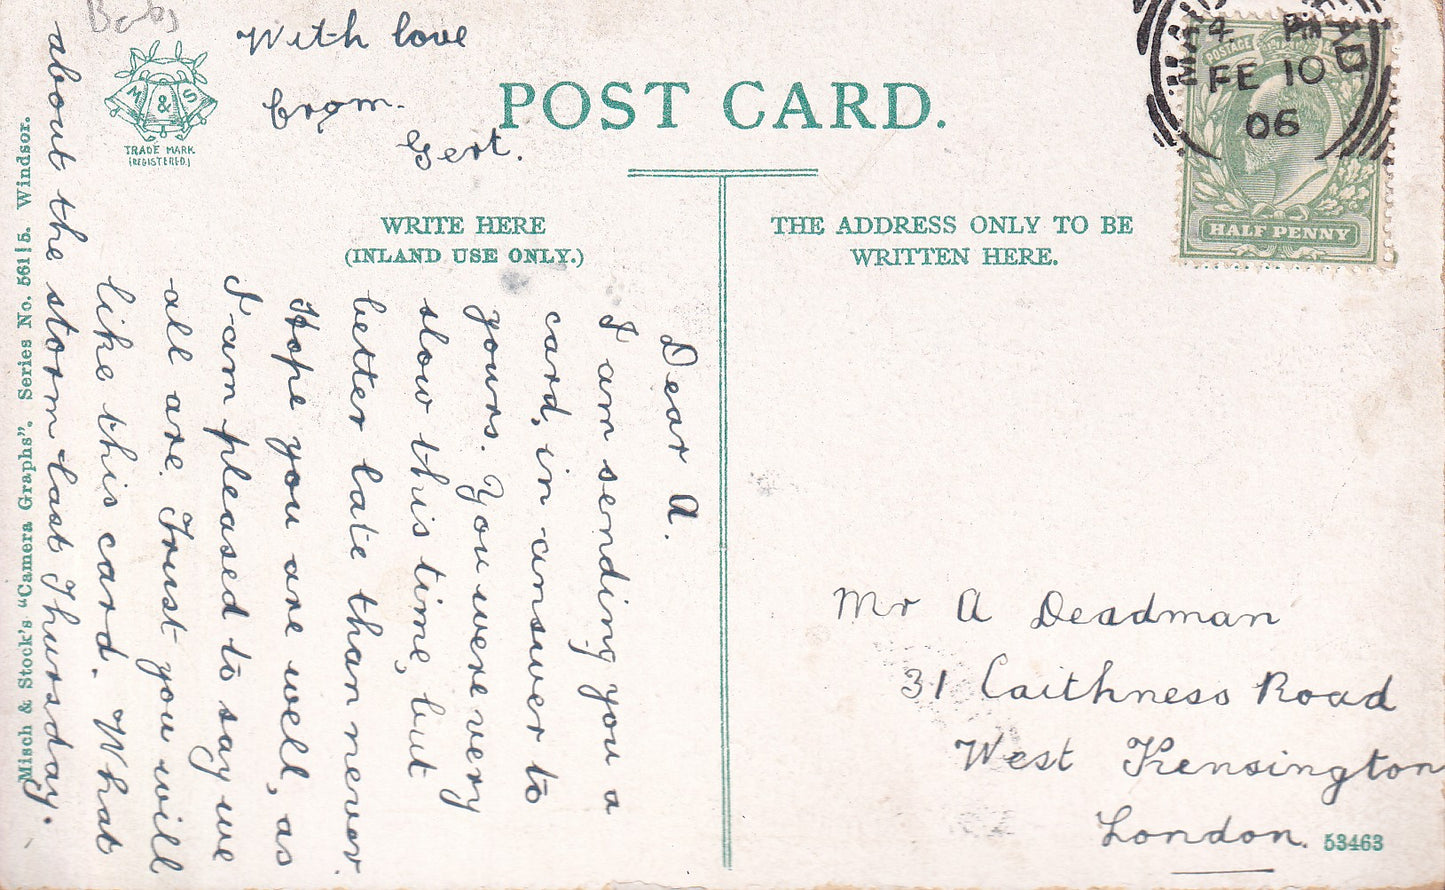 Babs
M & S
TRADE MARK
(REGISTERED.)
With love
from.
Gert.
POST CARD.
WRITE HERE
(INLAND USE ONLY.)
THE ADDRESS ONLY TO BE
WRITTEN HERE.
4 PM
FE 10
06
POSTAGE
HALF PENNY
Dear A.
I am sending you a
card, in answer to
yours. You were very
slow this time, but
better late than never.
Hope you are well, as
I am pleased to say we
all are. Trust you will
like this card. What
about the storm last Thursday.
Mr A Deadman
31 Caithness Road
West Kensington
London.
53463
Misch & Stock's "Camera Graphs". Series No. 561|5. Windsor.